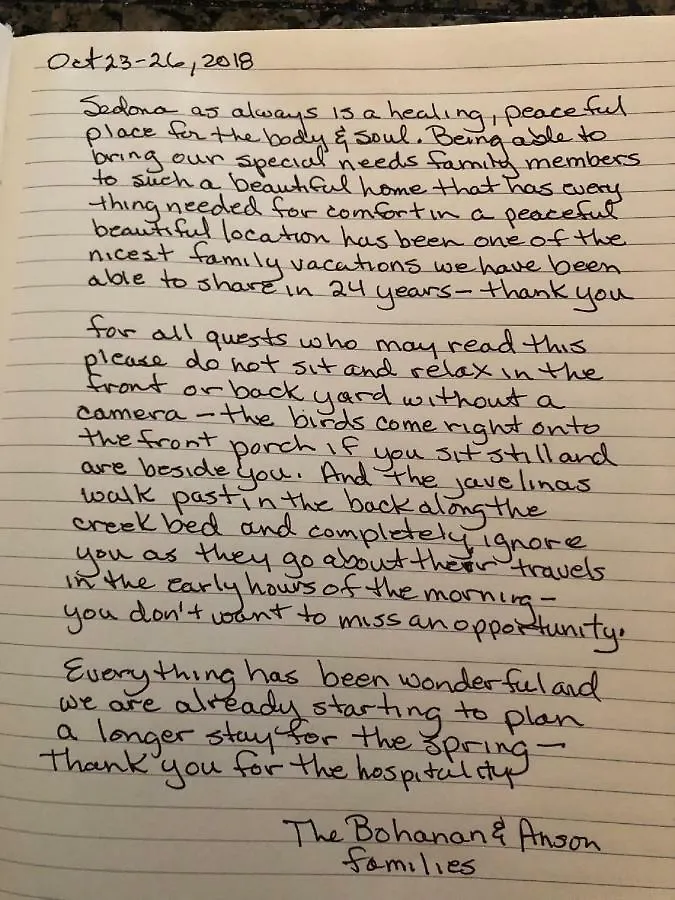 Oct 23-26, 2018
Sedona as always is a healing, peaceful
place for the body & soul. Being able to
bring our special needs family members
to such a beautiful home that has every
thing needed for comfort in a peaceful
beautiful location has been one of the
nicest family vacations we have been
able to share in 24 years - thank you
for all quests who may read this
please do not sit and relax in the
front or back yard without a
camera - the birds come right onto
the front porch if you sit still and
are beside you. And the javelinas
walk past in the back along the
creek bed and completely ignore
you as they go about their travels
in the early hours of the morning -
you don't want to miss an opportunity.
Everything has been wonderful and
we are already starting to plan
a longer stay for the Spring -
Thank you for the hospitality
The Bohanan & Anson
families